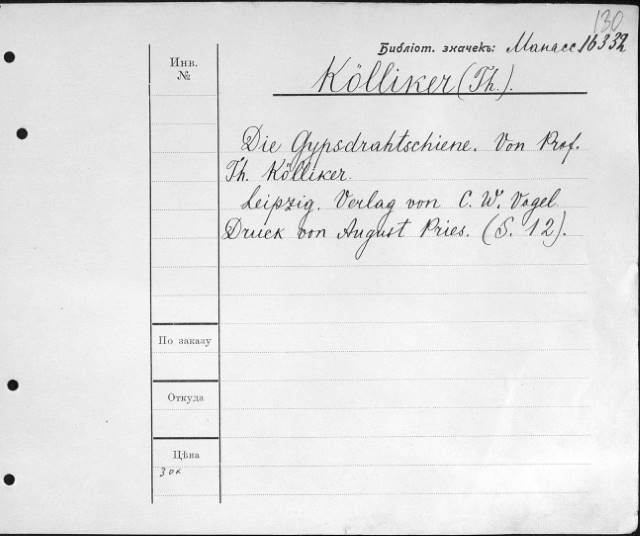 130
Библіот. значекъ: Манасс 16332
Инв.
№
Kölliker (Th.).
Die Gypsdrahtschiene. Von Prof.
Th. Kölliker.
Leipzig. Verlag von C. W. Vogel
Druck von August Pries. (S. 12).
По заказу
Откуда
Цѣна
30к